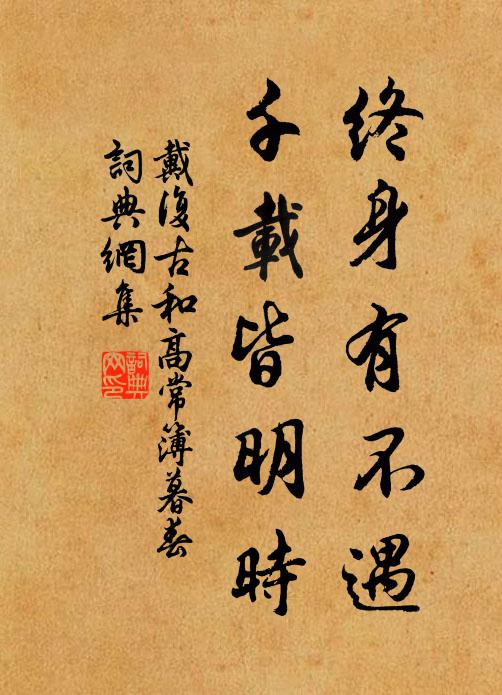 終身有不遇
千載皆明時
戴復古和高常簿暮春
詞典網集
詞典網印